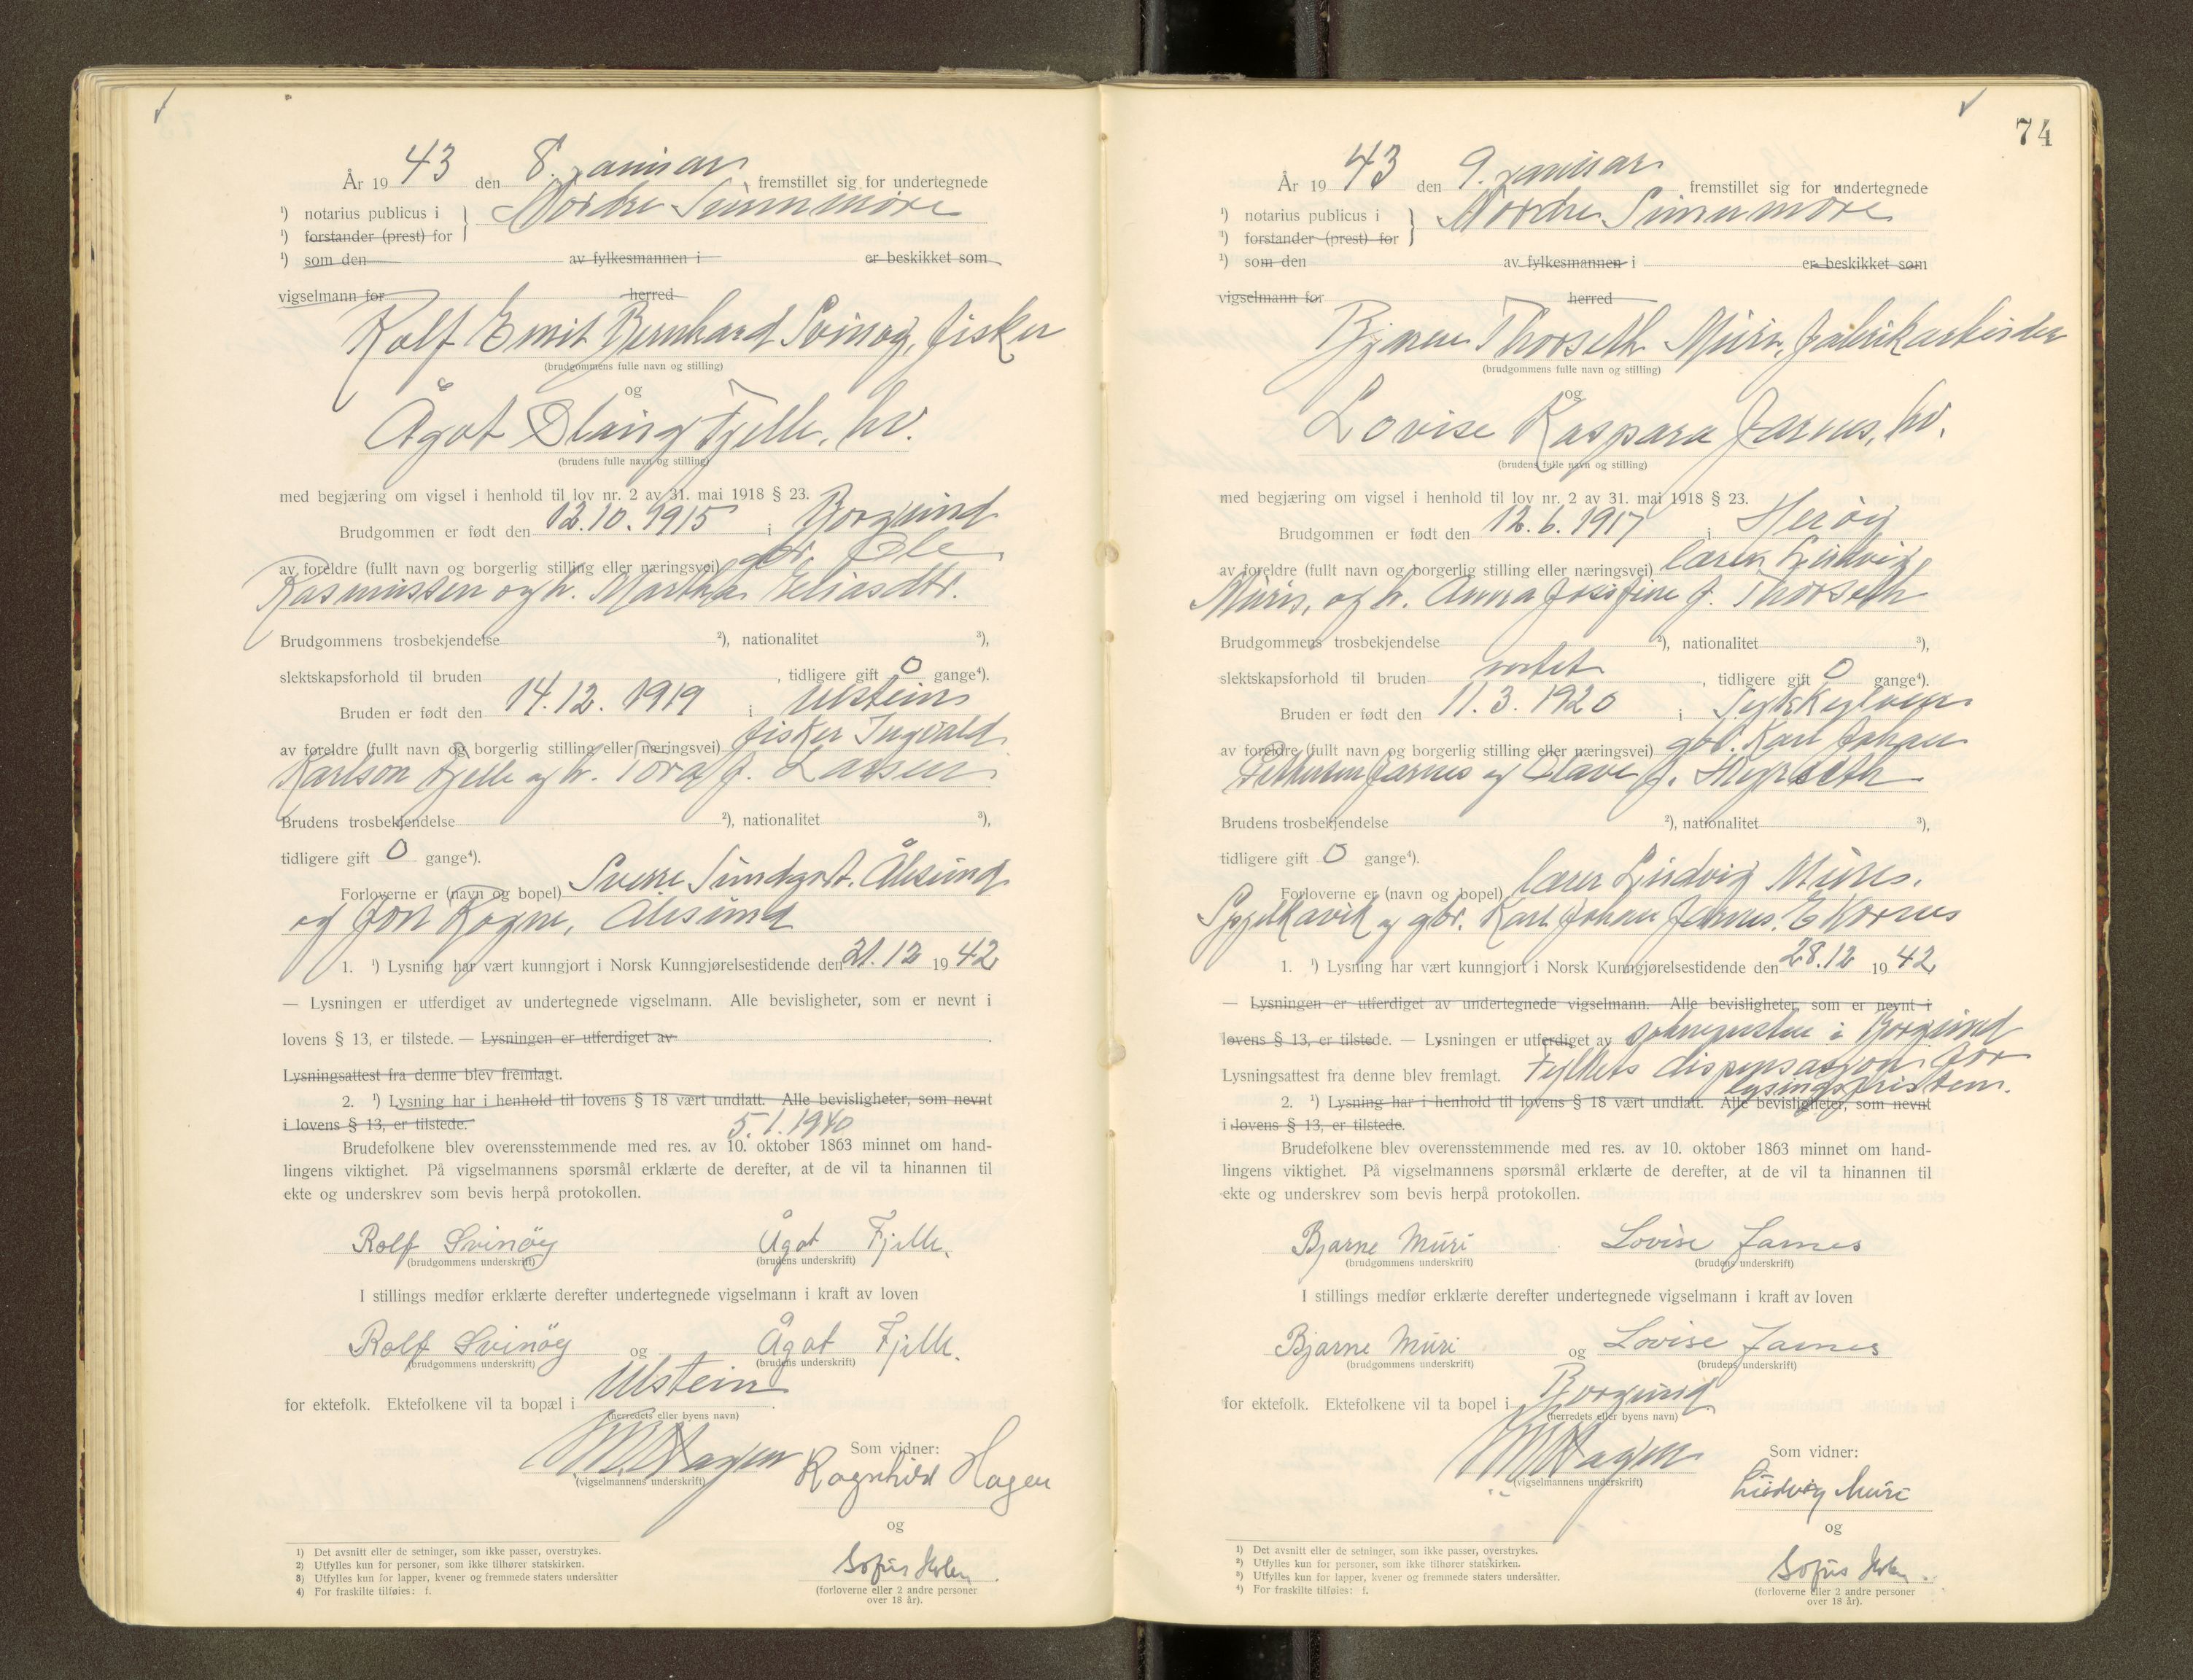 År 19 43 den 8. januar fremstillet sig for undertegnede
¹) notarius publicus i } Nordre Sunnmøre
¹) forstander (prest) for
¹) som den av fylkesmannen i er beskikket som
vigselmann for herred
Rolf Emit Bernhard Svinøy, fisker
(brudgommens fulle navn og stilling)
og
Ågot Slang Fjelle, hv.
(brudens fulle navn og stilling)
med begjæring om vigsel i henhold til lov nr. 2 av 31. mai 1918 § 23.
Brudgommen er født den 12.10.1915 i Borgund
av foreldre (fullt navn og borgerlig stilling eller næringsvei) gbr. Ole
Rasmussen og h. Martha Eliasdtr.
Brudgommens trosbekjendelse ²), nationalitet ³),
slektskapsforhold til bruden , tidligere gift 0 gange⁴).
Bruden er født den 14.12. 1919 i Ulstein
av foreldre (fullt navn og borgerlig stilling eller næringsvei) fisker Ingvald
Karlson Fjelle og h. Tora f. Larsen
Brudens trosbekjendelse ²), nationalitet ³),
tidligere gift 0 gange⁴).
Forloverne er (navn og bopel) Sverre Sundgot. Ålesund
og Jon Rogne, Ålesund
1. ¹) Lysning har vært kunngjort i Norsk Kunngjørelsestidende den 21.12 19 42
— Lysningen er utferdiget av undertegnede vigselmann. Alle bevisligheter, som er nevnt i
lovens § 13, er tilstede. — Lysningen er utferdiget av .
Lysningsattest fra denne blev fremlagt.
2. ¹) Lysning har i henhold til lovens § 18 vært undlatt. Alle bevisligheter, som nevnt
i lovens § 13, er tilstede. 5.1.1940
Brudefolkene blev overensstemmende med res. av 10. oktober 1863 minnet om hand-
lingens viktighet. På vigselmannens spørsmål erklærte de derefter, at de vil ta hinannen til
ekte og underskrev som bevis herpå protokollen.
Rolf Svinöy Ågot Fjelle.
(brudgommens underskrift) (brudens underskrift)
I stillings medfør erklærte derefter undertegnede vigselmann i kraft av loven
Rolf Svinöy og Ågot Fjelle.
(brudgommens underskrift) (brudens underskrift)
for ektefolk. Ektefolkene vil ta bopæl i Ulstein .
(herredets eller byens navn)
Som vidner:
Hagen Ragnhild Hagen
(vigselmannens underskrift)
og
Sofus Holen
(forloverne eller 2 andre personer
over 18 år).
1) Det avsnitt eller de setninger, som ikke passer, overstrykes.
2) Utfylles kun for personer, som ikke tilhører statskirken.
3) Utfylles kun for lapper, kvener og fremmede staters undersåtter
4) For fraskilte tilføies: f.
74
År 19 43 den 9. januar fremstillet sig for undertegnede
¹) notarius publicus i } Nordre Sunnmøre
¹) forstander (prest) for
¹) som den av fylkesmannen i er beskikket som
vigselmann for herred
Bjarne Thorseth Muri, fabrikarbeider
(brudgommens fulle navn og stilling)
og
Lovise Kaspara Jarnes, hv.
(brudens fulle navn og stilling)
med begjæring om vigsel i henhold til lov nr. 2 av 31. mai 1918 § 23.
Brudgommen er født den 12.6.1917 i Herøy
av foreldre (fullt navn og borgerlig stilling eller næringsvei) lærer Ludvig
Muris, og h. Anna Josefine f. Thorseth
Brudgommens trosbekjendelse ²), nationalitet ³),
slektskapsforhold til bruden intet , tidligere gift 0 gange⁴).
Bruden er født den 11.3.1920 i Sykkylven
av foreldre (fullt navn og borgerlig stilling eller næringsvei) gbr. Karl Johan
Jarnes og Olave f.
Brudens trosbekjendelse ²), nationalitet ³),
tidligere gift 0 gange⁴).
Forloverne er (navn og bopel) lærer Ludvig Muris.
Spjelkavik og gbr. Karl Johan Jarnes. Ekornes
1. ¹) Lysning har vært kunngjort i Norsk Kunngjørelsestidende den 28.12 19 42
— Lysningen er utferdiget av undertegnede vigselmann. Alle bevisligheter, som er nevnt i
lovens § 13, er tilstede. — Lysningen er utferdiget av sokneprsten i Borgund
Lysningsattest fra denne blev fremlagt. Fylkets dispensasjon for
lysingsfristen.
2. ¹) Lysning har i henhold til lovens § 18 vært undlatt. Alle bevisligheter, som nevnt
i lovens § 13, er tilstede.
Brudefolkene blev overensstemmende med res. av 10. oktober 1863 minnet om hand-
lingens viktighet. På vigselmannens spørsmål erklærte de derefter, at de vil ta hinannen til
ekte og underskrev som bevis herpå protokollen.
Bjarne Muri Lovise Jarnes
(brudgommens underskrift) (brudens underskrift)
I stillings medfør erklærte derefter undertegnede vigselmann i kraft av loven
Bjarne Muri og Lovise Jarnes
(brudgommens underskrift) (brudens underskrift)
for ektefolk. Ektefolkene vil ta bopel i Borgund
(herredets eller byens navn)
Som vidner:
Hagen Ludvig Muri
(vigselmannens underskrift)
og
Sofus Holen
(forloverne eller 2 andre personer
over 18 år).
1) Det avsnitt eller de setninger, som ikke passer, overstrykes.
2) Utfylles kun for personer, som ikke tilhører statskirken.
3) Utfylles kun for lapper, kvener og fremmede staters undersåtter.
4) For fraskilte tilføies: f.